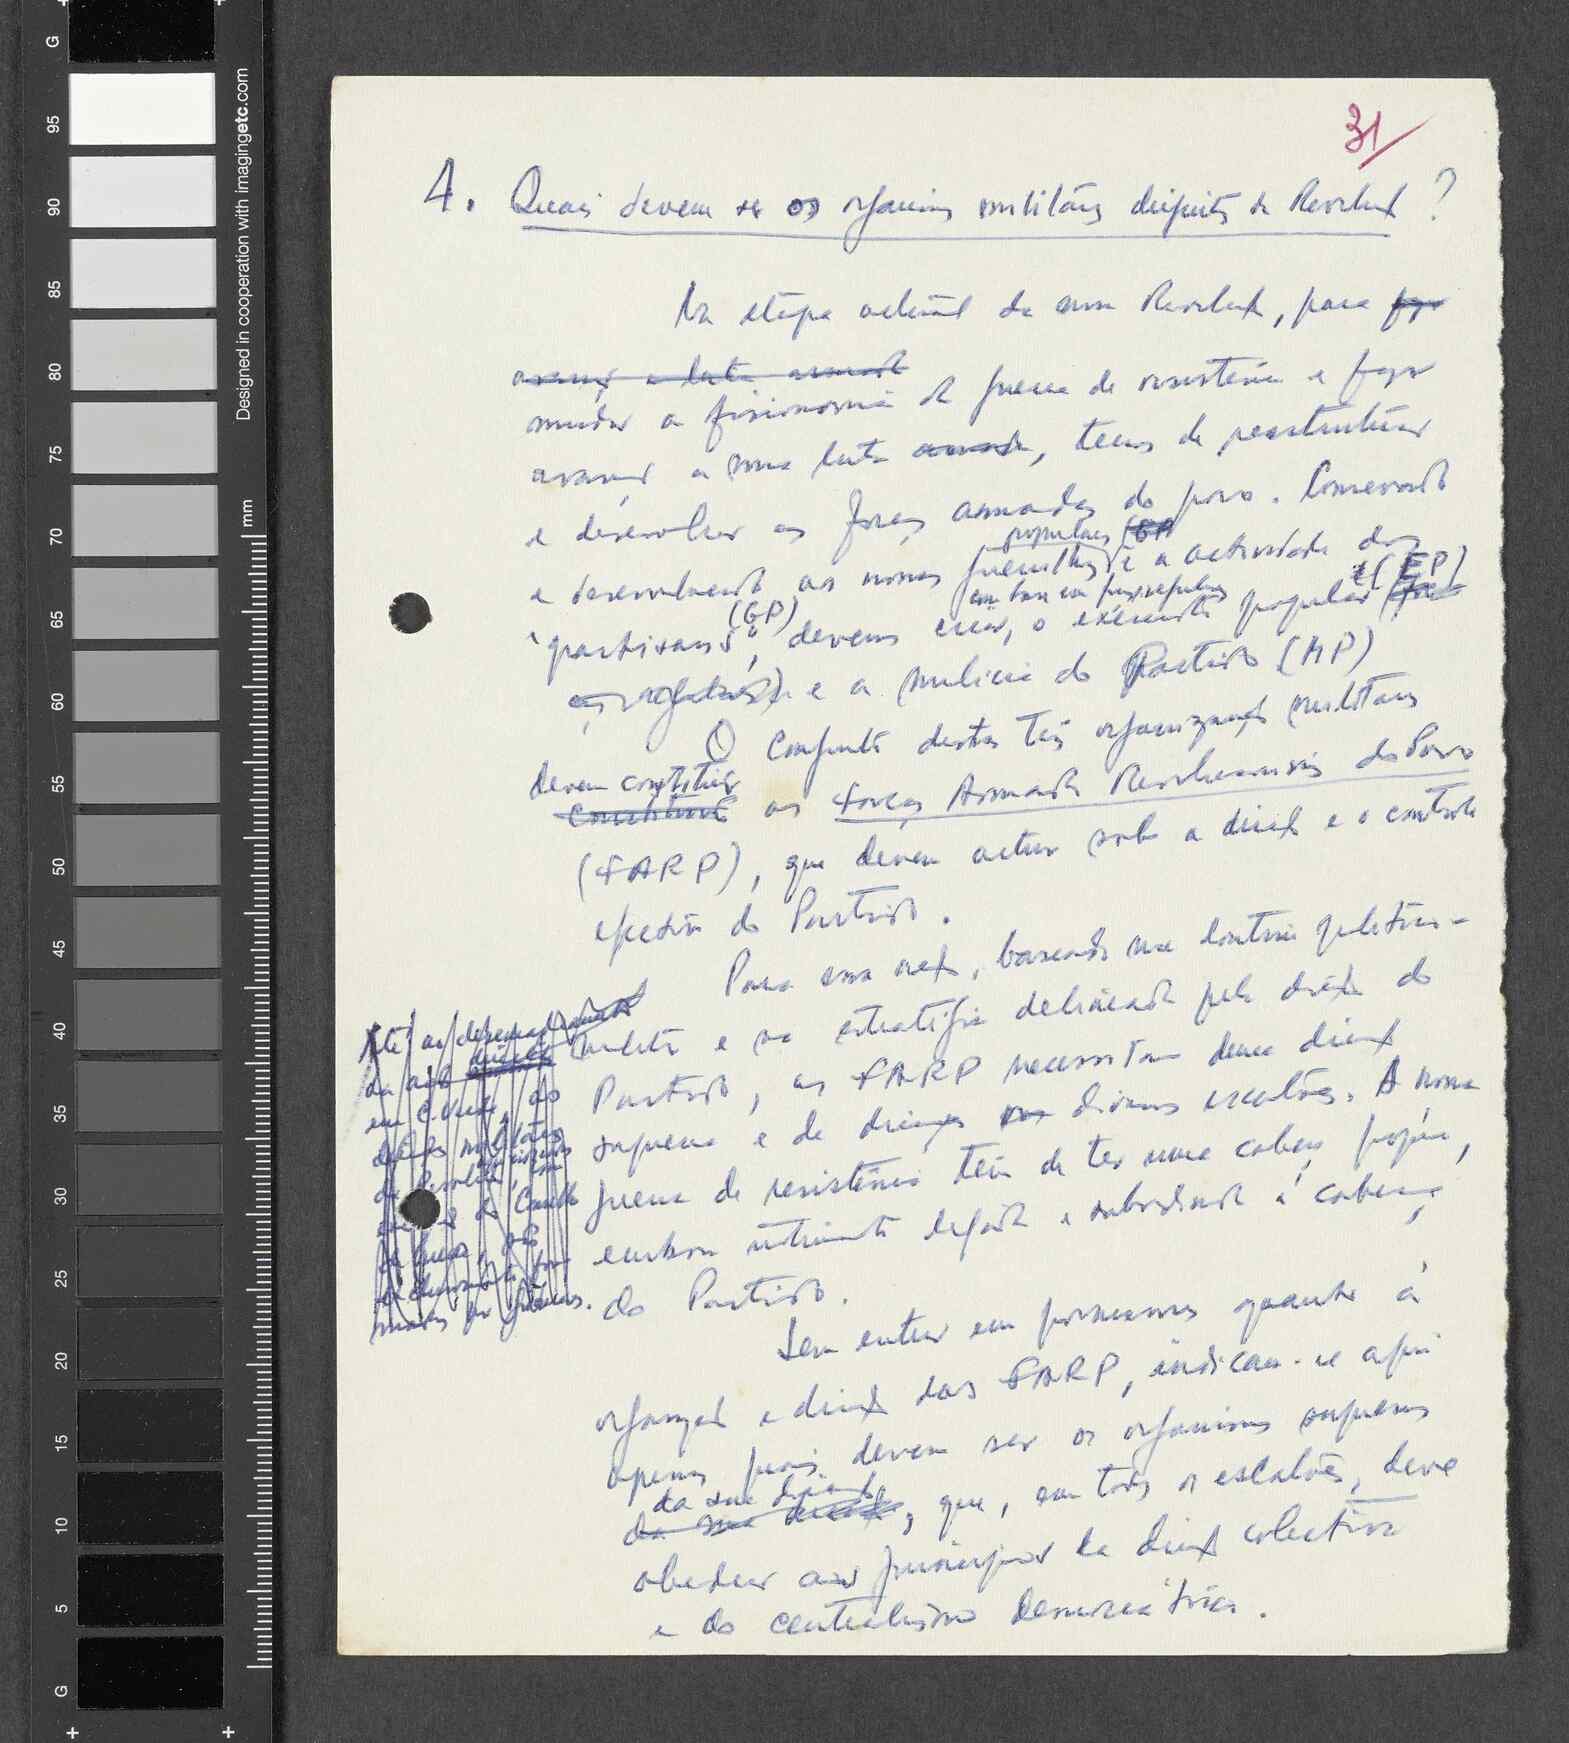 31
4. Quais devem ser os organismos militares dirigentes da Revolução?
Na etapa actual da nossa Revolução, para
avançar a luta armada
mudar a fisionomia da guerra de resistência e fazer
avançar a nossa luta armada, temos de reestruturar
e desenvolver as forças armadas do povo. Conservando
populares (GP
e desenvolvendo as nossas guerrilhas e a actividade dos
(GP) (EP)
"partisans", devemos criar, o exército popular
e a milícia do Partido (MP)
O conjunto destas três organizações militares
devem constituir
constituirá as Forças Armadas Revolucionárias do Povo
(FARP), que devem actuar sob a direcção e o controle
efectivo do Partido.
Para essa acção, baseada na doutrina político-
militar e na estratégia delineada pela direcção do
Partido, as FARP necessitam duma direcção
suprema e de direcções nos diversos escalões. A nossa
guerra de resistência tem de ter uma cabeça própria,
embora intimamente ligada e subordinada à cabeça
do Partido.
Sem entrar em pormenores quanto à
organização e direcção das FARP, indicam-se aqui
apenas quais devem ser os organismos supremos
da sua direcção
da sua direcção, que, em todos os escalões, deve
obedecer aos princípios da direcção colectiva
e do centralismo democrático.
Designed in cooperation with imagingetc.com
mm
G
95
90
85
80
75
70
65
60
55
50
45
40
35
30
25
20
15
10
5
G